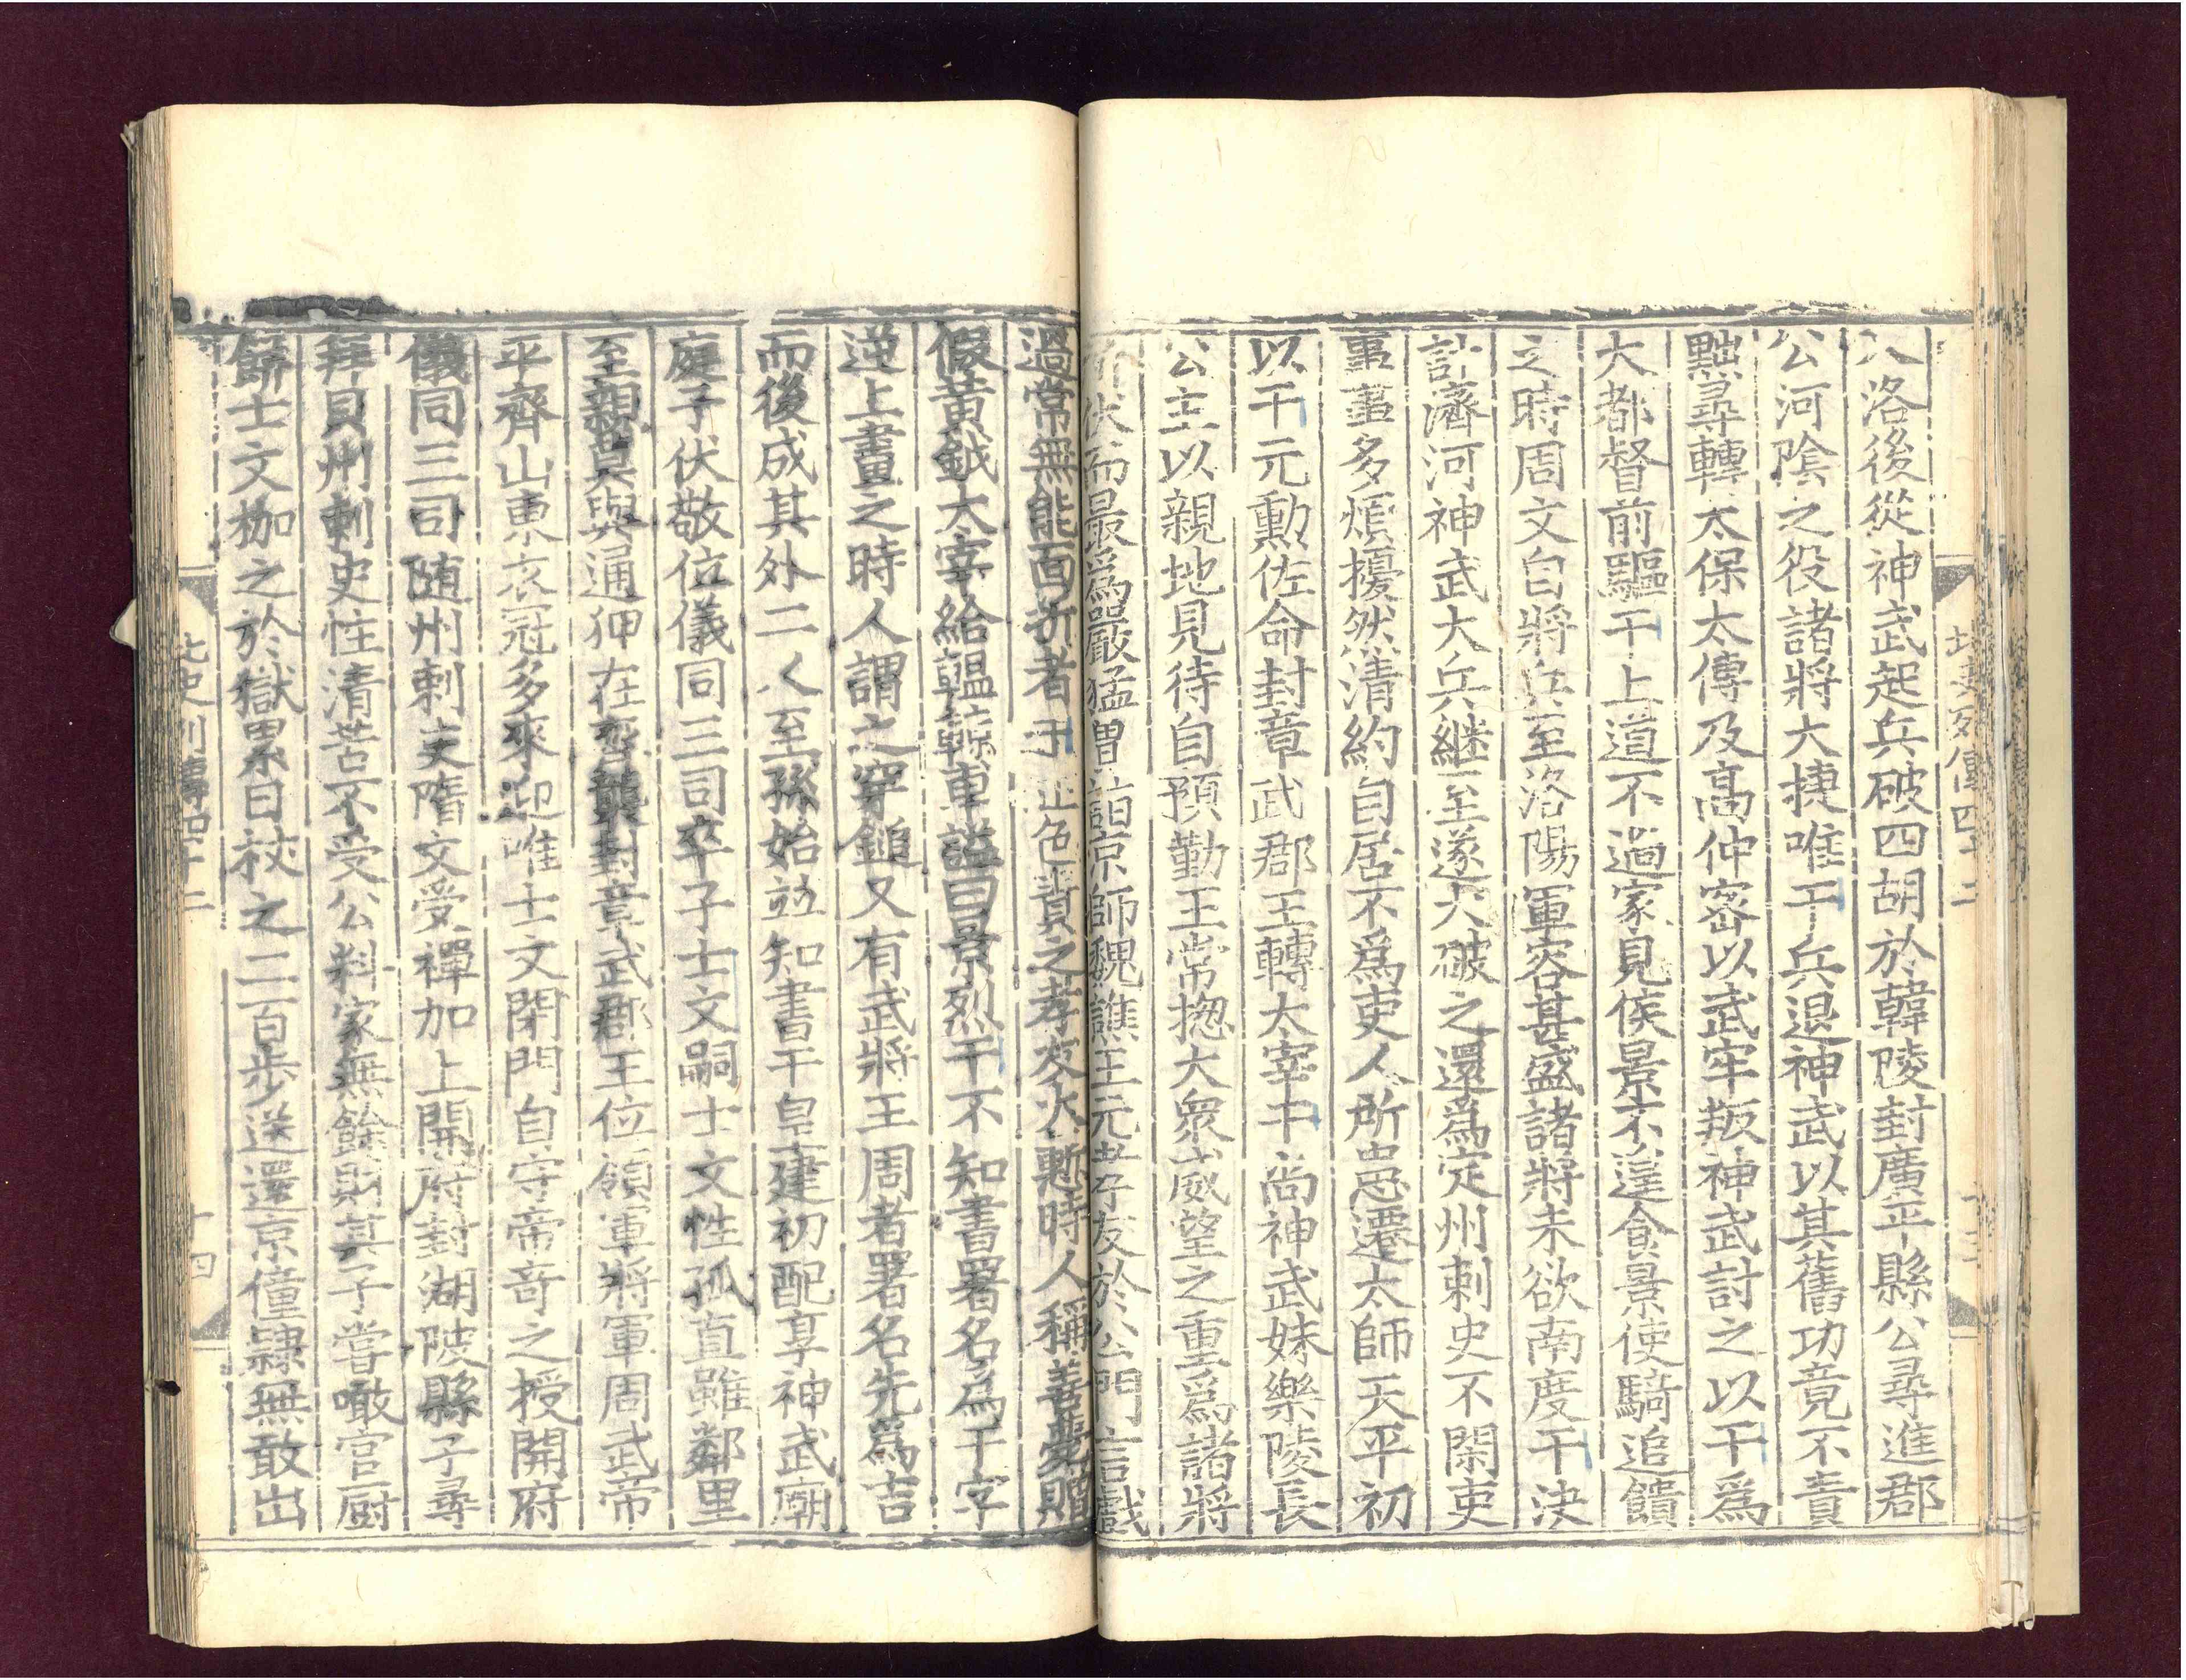 入洛後從神武起兵破四胡於韓陵封廣平縣公尋進郡
公河陰之役諸將大捷唯干兵退神武以其舊功竟不責
黜尋轉太保太傅及高仲密以武牢叛神武討之以干爲
大都督前驅干上道不過家見侯景不遑食景使騎追饋
之時周文自將兵至洛陽軍容甚盛諸將未欲南度干決
計濟河神武大兵継至遂大破之還爲定州刺史不閑吏
事事多煩擾然清約自居不爲吏人所患遷太師天平初
以干元勳佐命封章武郡王轉太宰干尚神武妹樂陵長
公主以親地見待自預勤王常揔大衆威望之重爲諸將
所伏而最爲嚴猛曽詣京師魏譙王元孝友於公門言戲
過常無能面折者干正色責之孝友大慙時人稱善薨贈
假黃鉞太宰給轀輬車謚曰景烈干不知書署名爲干字
逆上畫之時人謂之穿鎚又有武將王周者署名先爲吉
而後成其外二人至孫始並知書干皇建初配享神武廟
庭子伏敬位儀同三司卒子士文嗣士文性孤直雖鄰里
至親莫與通狎在齊襲封章武郡王位領軍將軍周武帝
平齊山東衣冠多來迎唯士文閉門自守帝竒之授開府
儀同三司随州刺史隋文受禪加上開府封湖陂縣子尋
拜貝州刺史性清苦不受公料家無餘財其子嘗噉官厨
餅士文枷之於獄累日杖之二百步送還京僮隸無敢出
北史列傳四十二
十四